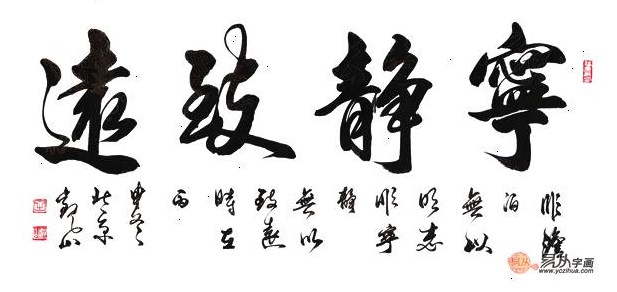 寧静致遠
非澹
泊
無以
明志
非寧
静
無以
致遠
時在
丙
申冬
北京
易从字画
www.yczihua.com